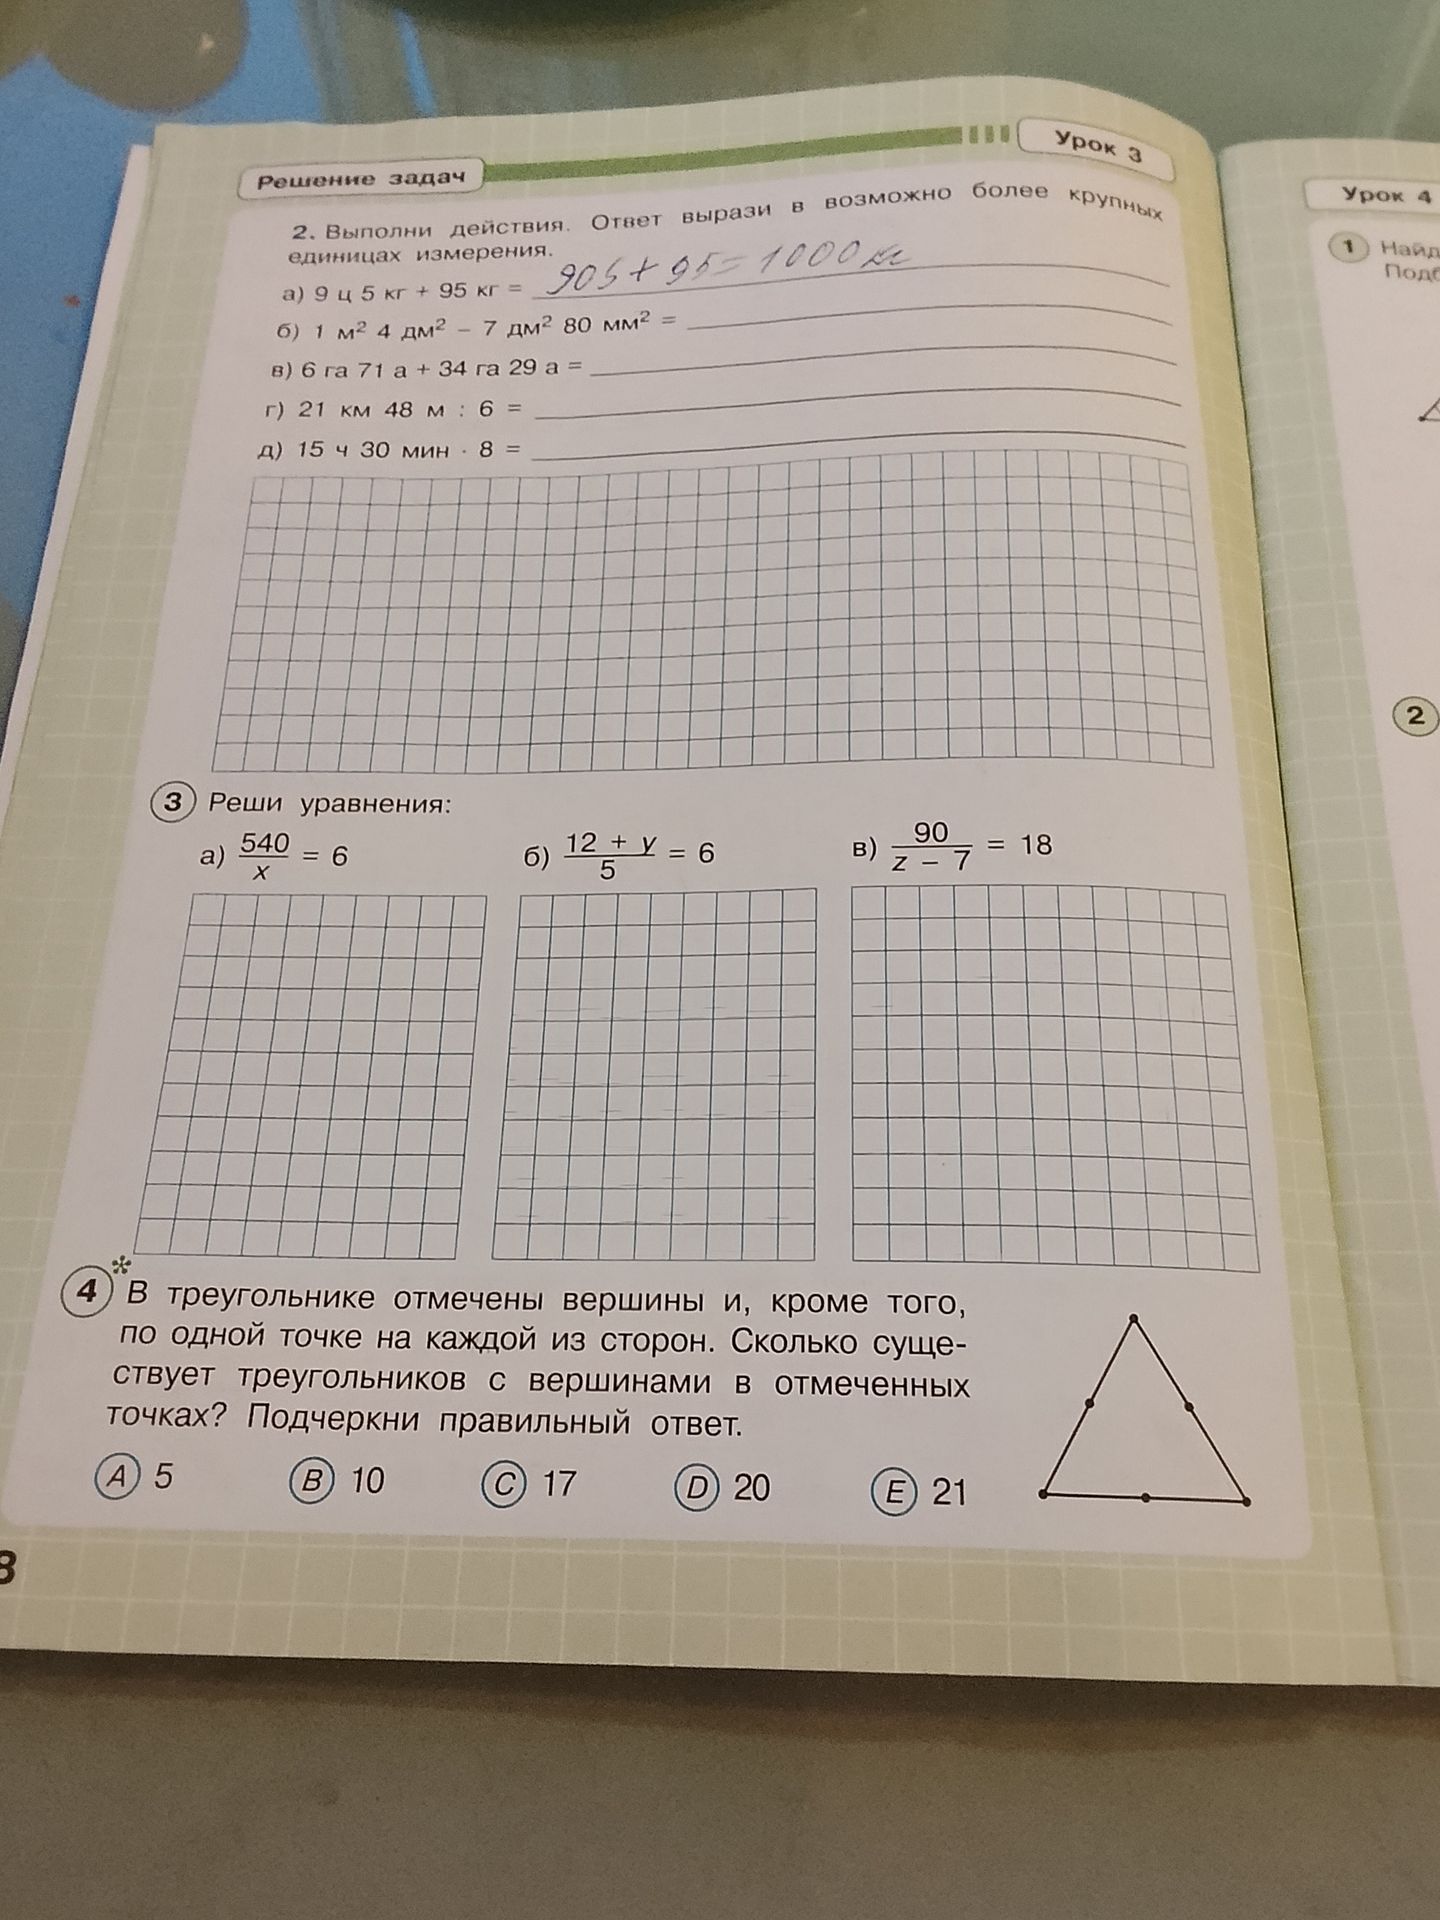 Решение задач
Урок 3
2. Выполни действия. Ответ вырази в возможно более крупных
единицах измерения.
а) 9 ц 5 кг + 95 кг = 905 + 95 = 1000 кг
б) 1 м² 4 дм² – 7 дм² 80 мм² =
в) 6 га 71 а + 34 га 29 а =
г) 21 км 48 м : 6 =
д) 15 ч 30 мин · 8 =
3 Реши уравнения:
а) 540/x = 6
б) 12 + y/5 = 6
в) 90/z – 7 = 18
4* В треугольнике отмечены вершины и, кроме того,
по одной точке на каждой из сторон. Сколько суще-
ствует треугольников с вершинами в отмеченных
точках? Подчеркни правильный ответ.
A 5
B 10
C 17
D 20
E 21
8
Урок 4
1
2